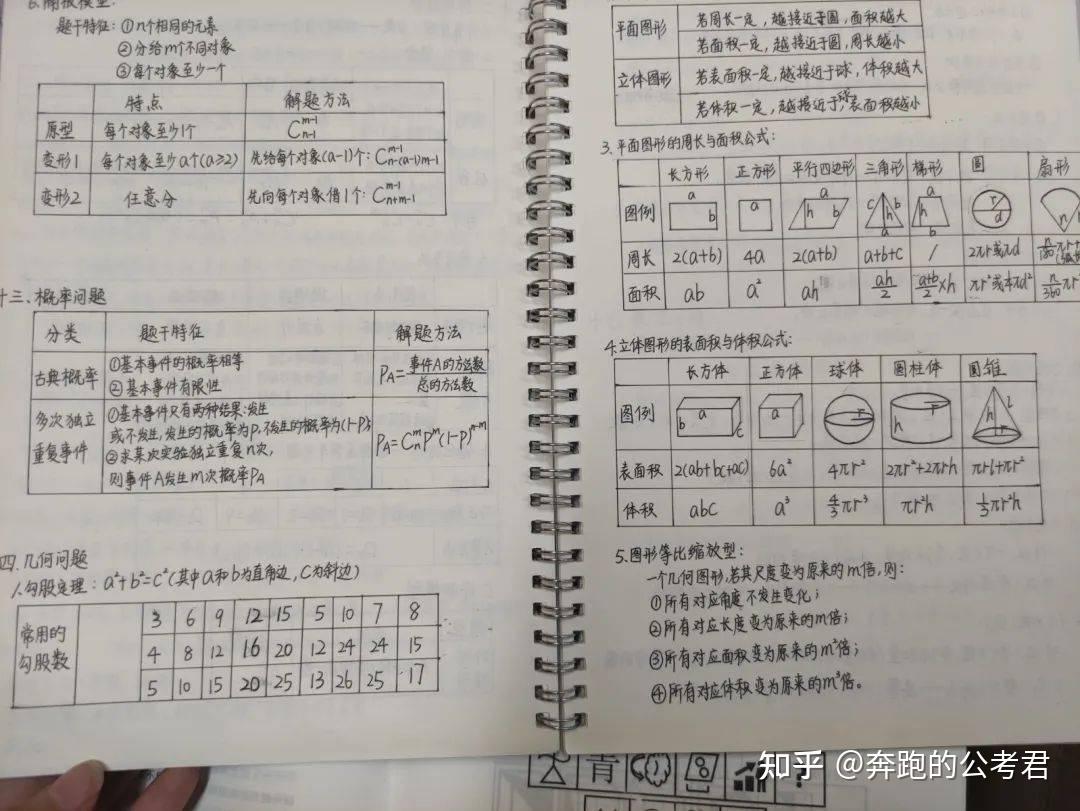 6.隔板模型:
题干特征:①n个相同的元素
②分给m个不同对象
③每个对象至少一个
特点 解题方法
原型 每个对象至少1个 C_{n-1}^{m-1}
变形1 每个对象至少a个(a≥2) 先给每个对象(a-1)个: C_{n-(a-1)m-1}^{m-1}
变形2 任意分 先向每个对象借1个: C_{n+m-1}^{m-1}
十三.概率问题
分类 题干特征 解题方法
古典概率 ①基本事件的概率相等
②基本事件有限性
P_A=事件A的方法数/总的方法数
多次独立重复事件 ①基本事件只有两种结果:发生
或不发生,发生的概率为P,不发生的概率为(1-P);
②求某次实验独立重复n次,
则事件A发生m次概率P_A
P_A=C_n^m P^m(1-P)^{n-m}
四.几何问题
1.勾股定理:a²+b²=c²(其中a和b为直角边,c为斜边)
常用的勾股数
3 6 9 12 15 5 10 7 8
4 8 12 16 20 12 24 24 15
5 10 15 20 25 13 26 25 17
平面图形 若周长一定,越接近于圆,面积越大
若面积一定,越接近于圆,周长越小
立体图形 若表面积一定,越接近于球,体积越大
若体积一定,越接近于球,表面积越小
3.平面图形的周长与面积公式:
长方形 正方形 平行四边形 三角形 梯形 圆 扇形
图例 a b a a h b c h b a a h b r d n
周长 2(a+b) 4a 2(a+b) a+b+c / 2πr或πd
面积 ab a² ah ah/2 (a+b)/2×h πr²或¼πd² n/360 πr²
4.立体图形的表面积与体积公式:
长方体 正方体 球体 圆柱体 圆锥
图例 b a c a r h r h l r
表面积 2(ab+bc+ac) 6a² 4πr² 2πr²+2πrh πrl+πr²
体积 abc a³ 4/3πr³ πr²h 1/3πr²h
5.图形等比缩放型:
一个几何图形,若其尺度变为原来的m倍,则:
①所有对应角度不发生变化;
②所有对应长度变为原来的m倍;
③所有对应面积变为原来的m²倍;
④所有对应体积变为原来的m³倍。
青 ?
知乎 @奔跑的公考君